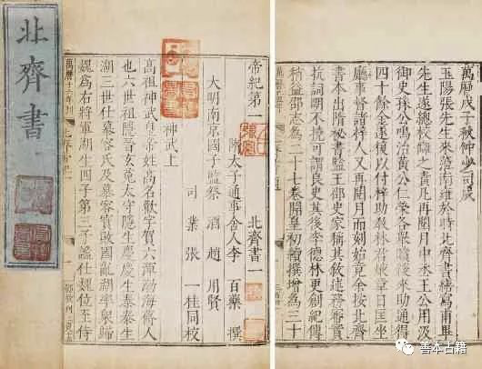 萬曆戊子秋仲少司成
玉陽張先生來蒞南雍於時北齊書榜為甫畢
先生遂總校讎之責凡再閱月中丞王公用汲
御史孫公鳴治黃公仁榮各 後來助通得
四十餘金遂復以付梓助教林君 日匡坐
廳事督諸梓人又再閱月而刻始竟余按北齊
書本出隋祕書監王邵史家稱其敘述務審實
抗詞期不撓可謂良史其後李德林更創紀傳
稍益邵志為二十七卷開皇初續撰增為三十
帝紀第一 北齊書一
隋太子通事舍人李 百藥 撰
大明南京國子監祭 酒趙用賢
司 業張一桂同校
神武上
高祖神武皇帝姓高名歡字賀六渾渤海蓨人
也六世祖隱晉玄菟太守隱生慶慶生泰泰生
湖三世仕慕容氏及慕容寶敗國亂湖率眾歸
魏為右將軍湖生四子第三子謐仕魏位至侍
萬曆十六年刊
北齊書
善本古籍